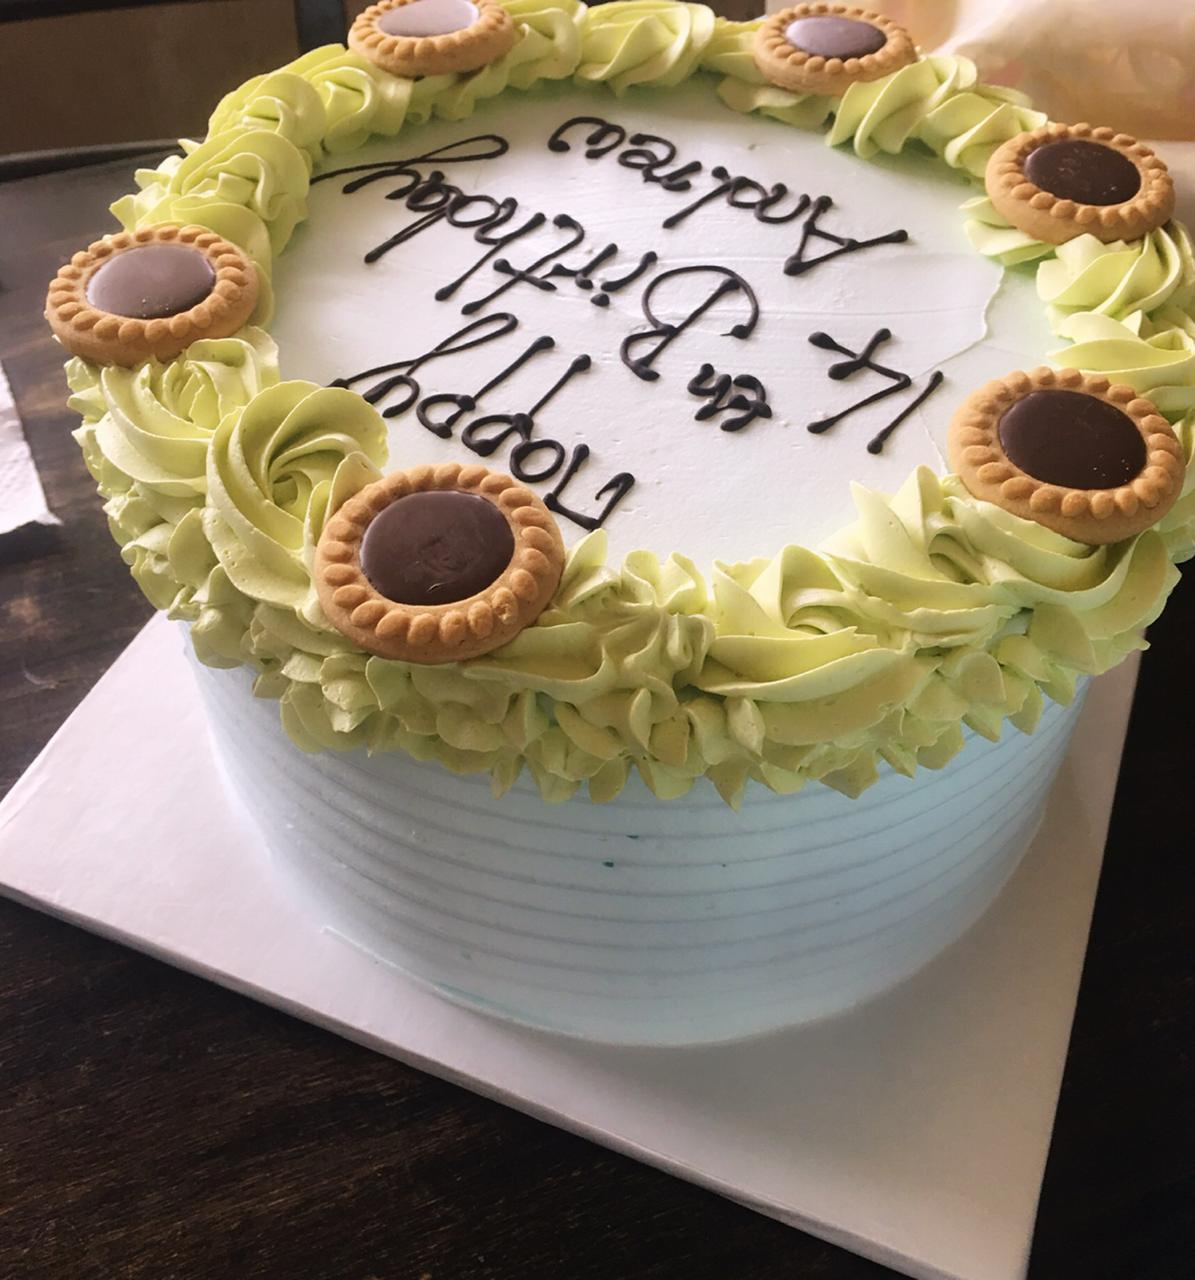 Happy
14th Birthday
Andrew